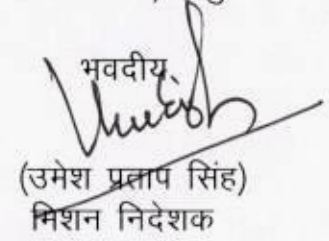 भवदीय,
(उमेश प्रताप सिंह)
मिशन निदेशक